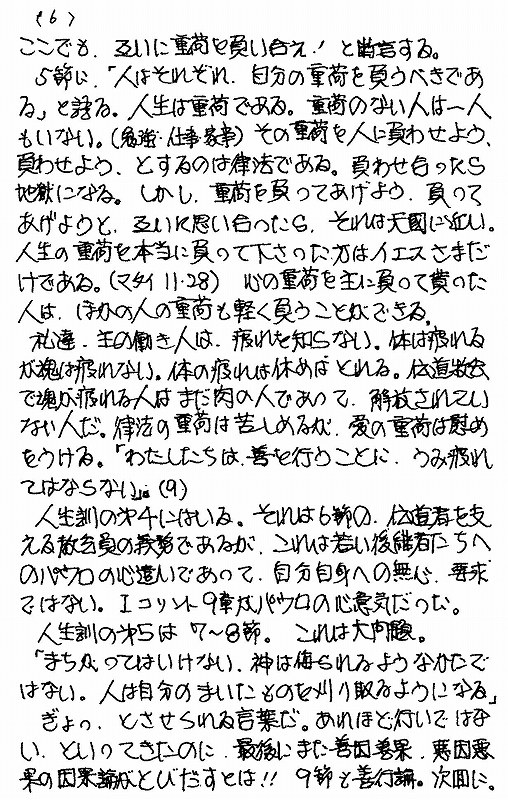 (6)
ここでも、互いに重荷を負い合え！と断言する。
5節に、「人はそれぞれ、自分の重荷を負うべきであ
る」と語る。人生は重荷である。重荷のない人は一人
もいない。(勉強・仕事・家事) その重荷を人に負わせよう、
負わせよう、とするのは律法である。負わせ合ったら
地獄になる。しかし、重荷を負ってあげよう、負って
あげようと、互いに思い合ったら、それは天國に近い。
人生の重荷を本当に負って下さった方はイエスさまだ
けである。(マタイ 11・28) 心の重荷を主に負って貰った
人は、ほかの人の重荷も軽く負うことができる。
私達、主の働き人は、疲れを知らない。体は疲れる
が魂は疲れない。体の疲れは休めばとれる。伝道教会
で魂が疲れる人はまだ肉の人であって、解放されてい
ない人だ。律法の重荷は苦しめるが、愛の重荷は慰め
をうける。「わたしたちは、善を行うことに、うみ疲れ
てはならない」。(9)
人生訓の第4にはいる。それは6節の、伝道者を支
える教会員の義務であるが、これは若い後継者たちへ
のパウロの心遣いであって、自分自身への無心、要求
ではない。Iコリント9章がパウロの心意気だった。
人生訓の第5は 7〜8節。これは大問題。
「まちがってはいけない、神は侮られるようなかたで
はない。人は自分のまいたものを刈り取るようになる」
ぎょっ、とさせられる言葉だ。あれほど行いではな
い、といってきたのに、最後にまた善因善果、悪因悪
果の因果論がとびだすとは!! 9節も善行論。次回に。